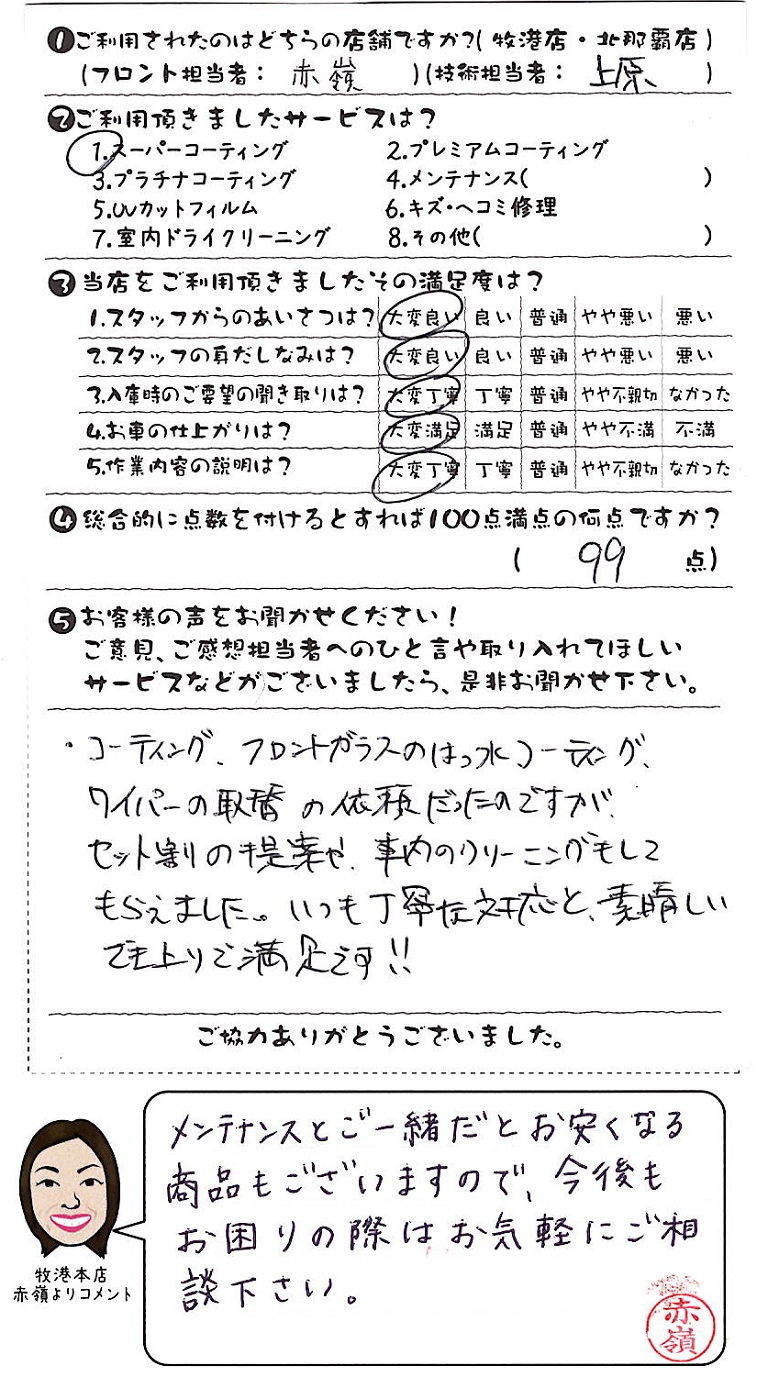 ❶ご利用されたのはどちらの店舗ですか?(牧港店・北那覇店)
(フロント担当者: 赤嶺 )(技術担当者: 上原 )
❷ご利用頂きましたサービスは?
1.スーパーコーティング 2.プレミアムコーティング
3.プラチナコーティング 4.メンテナンス( )
5.UVカットフィルム 6.キズ・ヘコミ修理
7.室内ドライクリーニング 8.その他( )
❸当店をご利用頂きましたその満足度は?
1.スタッフからのあいさつは? 大変良い 良い 普通 やや悪い 悪い
2.スタッフの身だしなみは? 大変良い 良い 普通 やや悪い 悪い
3.入庫時のご要望の聞き取りは? 大変丁寧 丁寧 普通 やや不親切 なかった
4.お車の仕上がりは? 大変満足 満足 普通 やや不満 不満
5.作業内容の説明は? 大変丁寧 丁寧 普通 やや不親切 なかった
❹総合的に点数を付けるとすれば100点満点の何点ですか?
( 99 点)
❺お客様の声をお聞かせください!
ご意見、ご感想担当者へのひと言や取り入れてほしい
サービスなどがございましたら、是非お聞かせ下さい。
・コーティング、フロントガラスのはっ水コーティング、
ワイパーの取替の依頼だったのですが、
セット割の提案や、車内のクリーニングもして
もらえました。いつも丁寧な対応と、素晴しい
でき上りで満足です!!
ご協力ありがとうございました。
メンテナンスとご一緒だとお安くなる
商品もございますので、今後も
お困りの際はお気軽にご相
談下さい。
牧港本店
赤嶺よりコメント
赤嶺